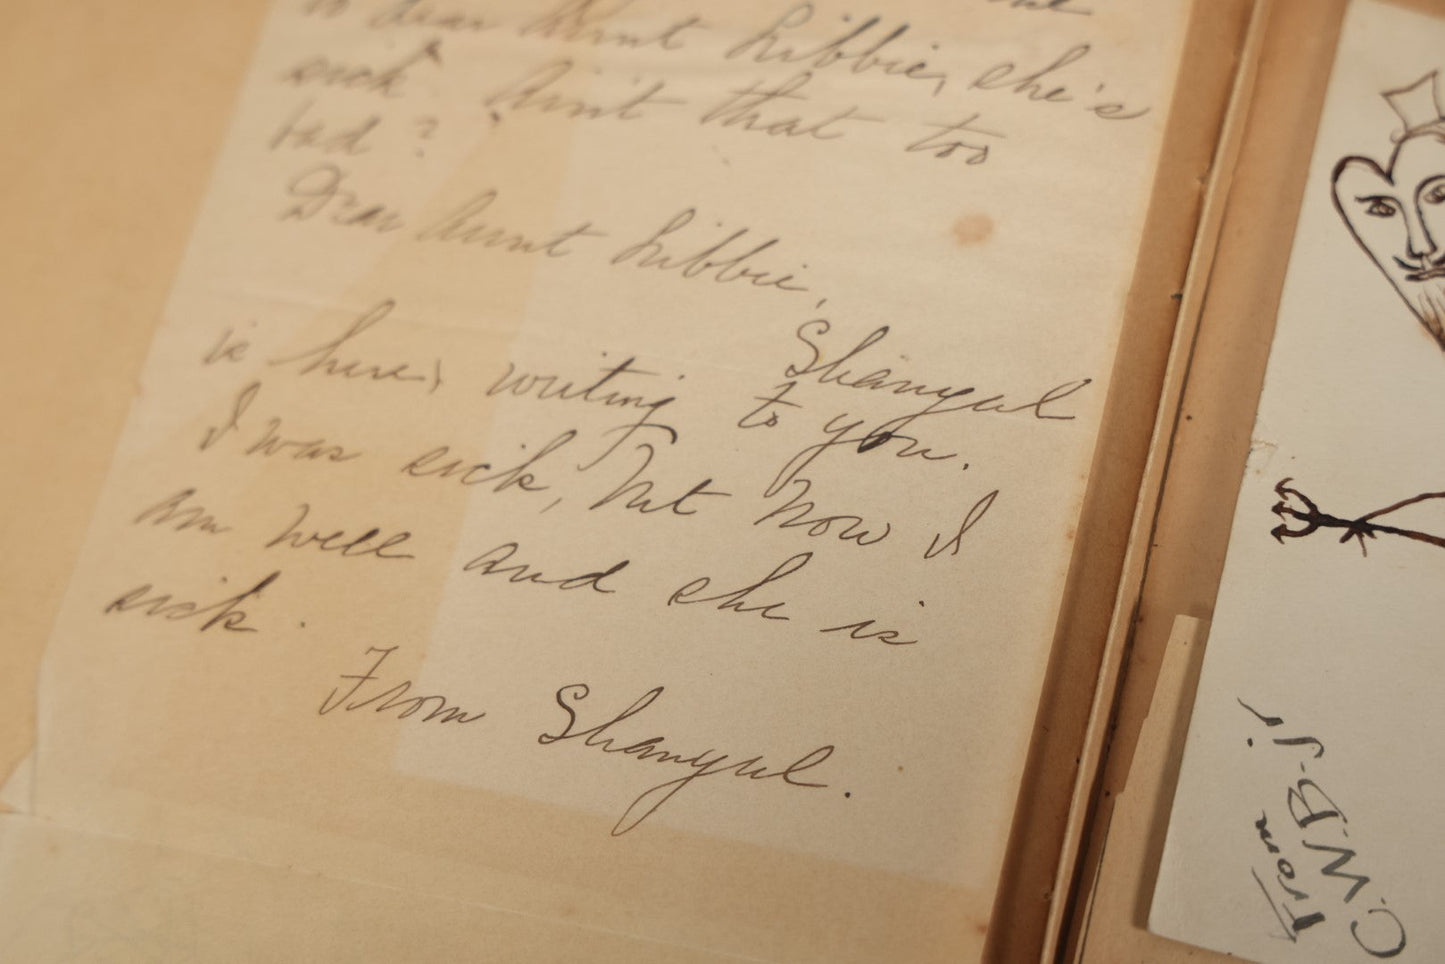 is dear Aunt Libbie, she's
sick. Ain't that too
bad?
Dear Aunt Libbie,
Shanyul
is here, writing to you.
I was sick, but now I
am well and she is
sick.
From Shanyul.
From
C.W.B-Jr